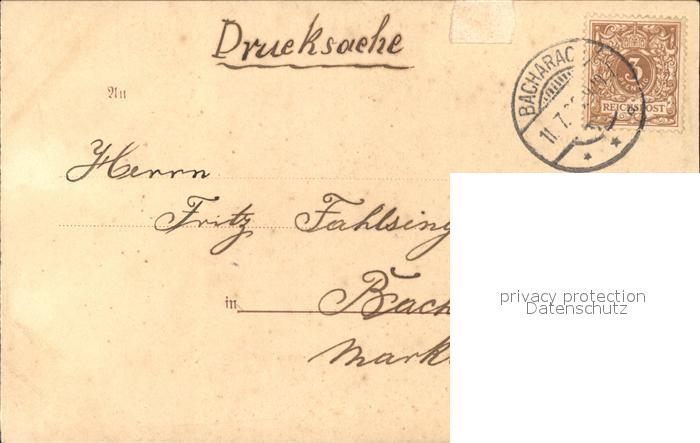 Drucksache
BACHARAC
11.7.
3
REICHSPOST
An
Herrn
Fritz Fahlsing
privacy protection
Datenschutz
in Bach
Mark